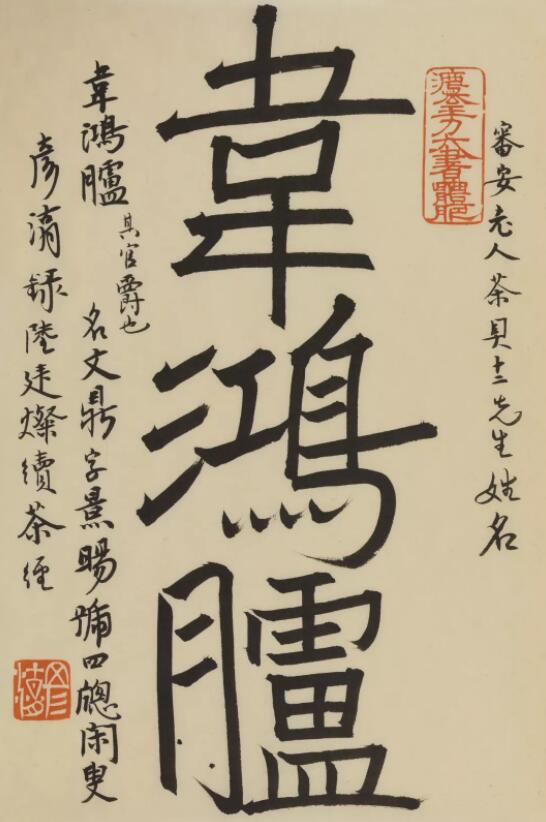 審安老人茶具十二先生姓名
韋鴻臚
韋鴻臚 其官爵也 名文鼎字景暘號四牕閑叟
彥 錄陸廷燦續茶經